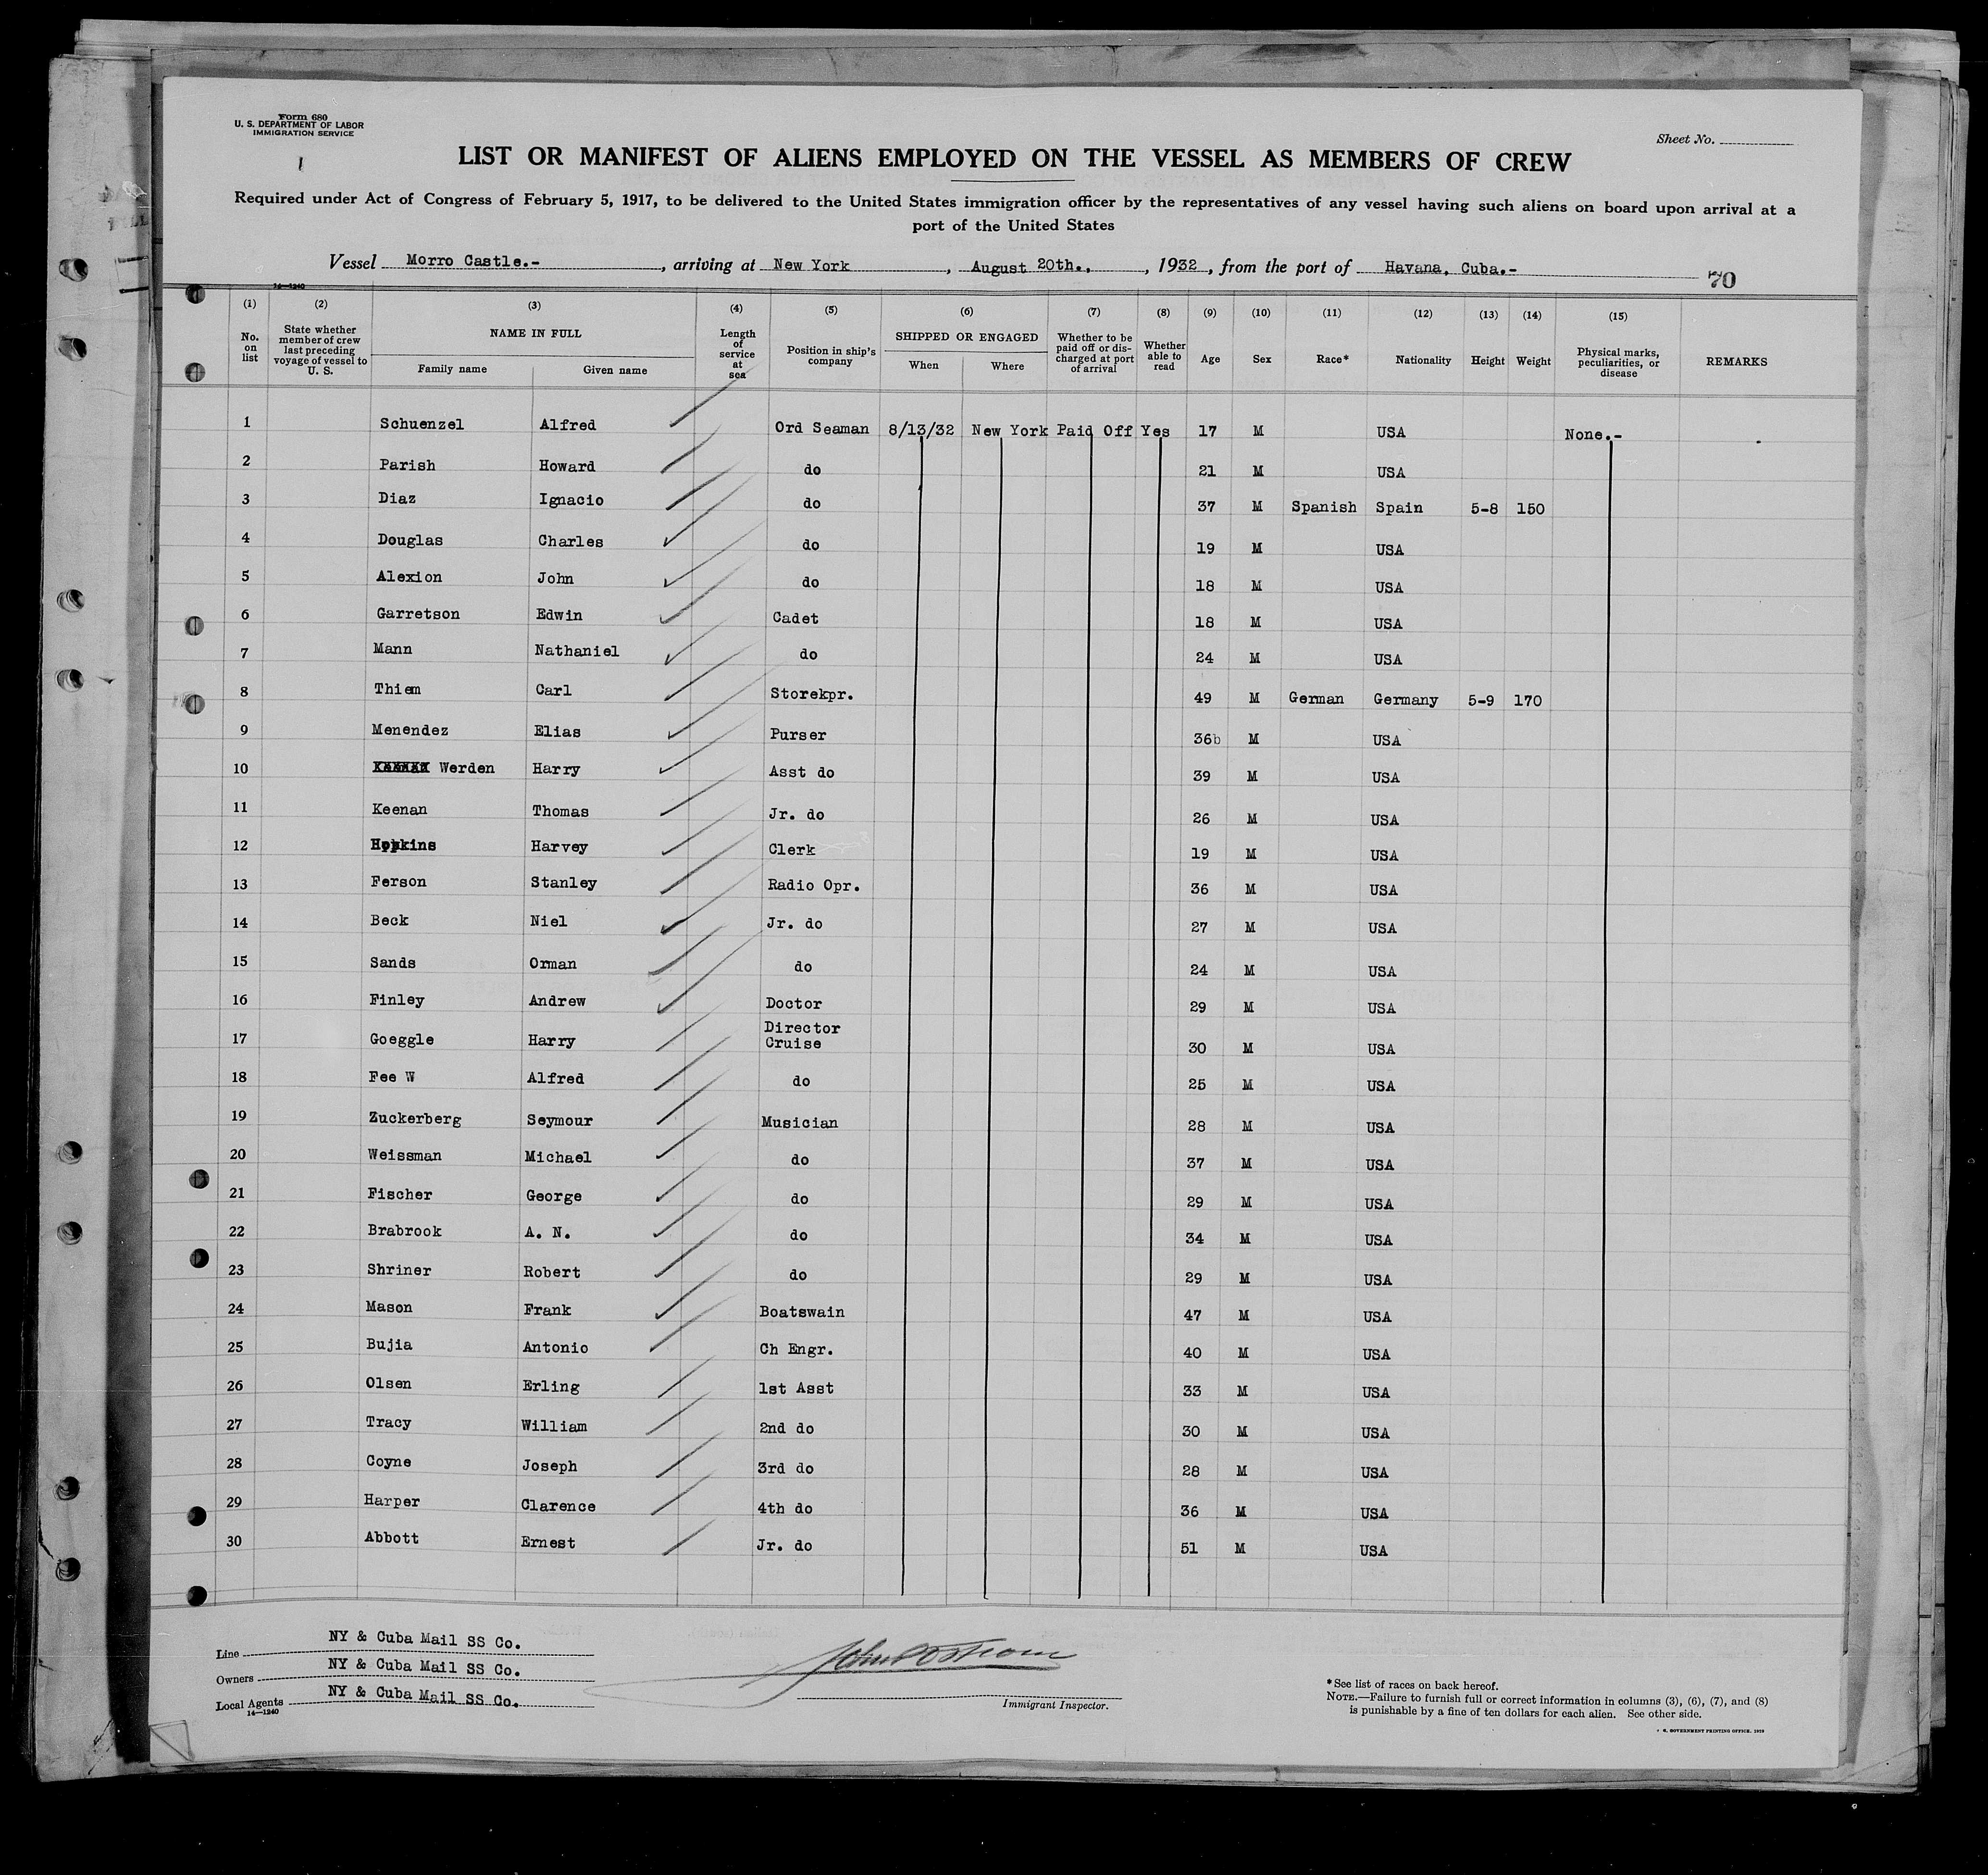 Form 680
U. S. DEPARTMENT OF LABOR
IMMIGRATION SERVICE
1
Sheet No.
LIST OR MANIFEST OF ALIENS EMPLOYED ON THE VESSEL AS MEMBERS OF CREW
Required under Act of Congress of February 5, 1917, to be delivered to the United States immigration officer by the representatives of any vessel having such aliens on board upon arrival at a
port of the United States
Vessel Morro Castle.- , arriving at New York , August 20th., , 1932 , from the port of Havana, Cuba.- 70
14—1240
(1) (2) (3) (4) (5) (6) (7) (8) (9) (10) (11) (12) (13) (14) (15)
No. on list State whether member of crew last preceding voyage of vessel to U. S. NAME IN FULL Family name Given name Length of service at sea Position in ship's company SHIPPED OR ENGAGED When Where Whether to be paid off or discharged at port of arrival Whether able to read Age Sex Race* Nationality Height Weight Physical marks, peculiarities, or disease REMARKS
1 Schuenzel Alfred Ord Seaman 8/13/32 New York Paid Off Yes 17 M USA None.-
2 Parish Howard do 21 M USA
3 Diaz Ignacio do 37 M Spanish Spain 5-8 150
4 Douglas Charles do 19 M USA
5 Alexion John do 18 M USA
6 Garretson Edwin Cadet 18 M USA
7 Mann Nathaniel do 24 M USA
8 Thiem Carl Storekpr. 49 M German Germany 5-9 170
9 Menendez Elias Purser 36b M USA
10 Werden Harry Asst do 39 M USA
11 Keenan Thomas Jr. do 26 M USA
12 Hopkins Harvey Clerk 19 M USA
13 Ferson Stanley Radio Opr. 36 M USA
14 Beck Niel Jr. do 27 M USA
15 Sands Orman do 24 M USA
16 Finley Andrew Doctor 29 M USA
17 Goeggle Harry Director Cruise 30 M USA
18 Fee W Alfred do 25 M USA
19 Zuckerberg Seymour Musician 28 M USA
20 Weissman Michael do 37 M USA
21 Fischer George do 29 M USA
22 Brabrook A. N. do 34 M USA
23 Shriner Robert do 29 M USA
24 Mason Frank Boatswain 47 M USA
25 Bujia Antonio Ch Engr. 40 M USA
26 Olsen Erling 1st Asst 33 M USA
27 Tracy William 2nd do 30 M USA
28 Coyne Joseph 3rd do 28 M USA
29 Harper Clarence 4th do 36 M USA
30 Abbott Ernest Jr. do 51 M USA
Line NY & Cuba Mail SS Co.
Owners NY & Cuba Mail SS Co.
Local Agents NY & Cuba Mail SS Co.
14—1240
Immigrant Inspector.
*See list of races on back hereof.
NOTE.—Failure to furnish full or correct information in columns (3), (6), (7), and (8)
is punishable by a fine of ten dollars for each alien. See other side.